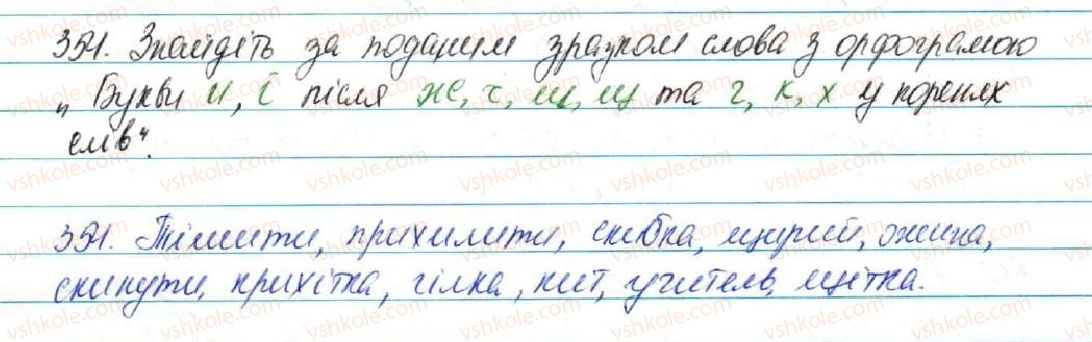 351. Знайдіть за поданим зразком слова з орфограмою
„Букви и, і після ж, ч, ш, щ та г, к, х у коренях
слів".
351. Тішити, прихилити, скибка, щирий, ожина,
скинути, крихітка, гілка, кит, учитель, щітка.